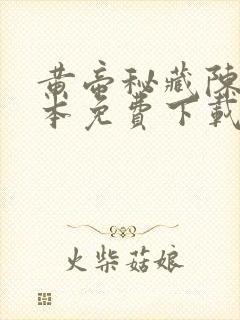 黄帝秘藏陳
本免費下載
火柴菇娘